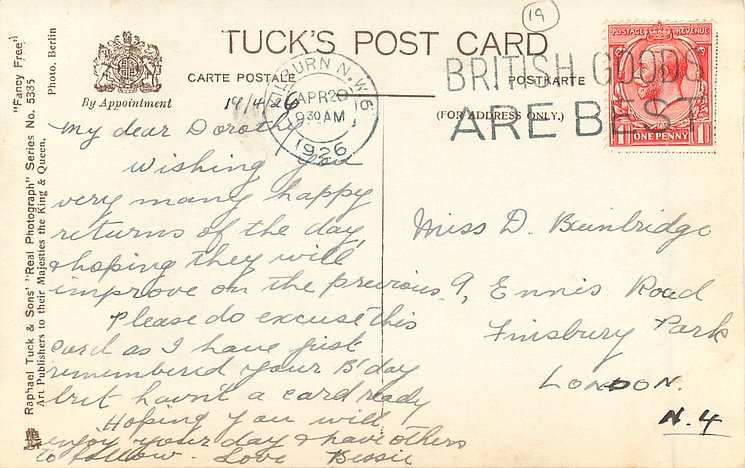 19
TUCK'S POST CARD
CARTE POSTALE
POSTKARTE
(FOR ADDRESS ONLY.)
By Appointment
"Fancy Free"
Photo, Berlin
Raphael Tuck & Sons' "Real Photograph" Series No. 5335
Art Publishers to their Majesties the King & Queen.
KILBURN N.W.6
9 30 AM
APR 20
1926
BRITISH GOODS
ARE BEST
POSTAGE REVENUE
1 ONE PENNY 1
19/4/26
My dear Dorothy
Wishing you
very many happy
returns of the day
& hoping they will
improve on the previous.
Please do excuse this
card as I have just
remembered your B'day
but havn't a card ready
Hoping you will
enjoy your day & have others
to follow. Love Bessie
Miss D. Bainbridge
9, Ennis Road
Finsbury Park
LONDON.
N.4